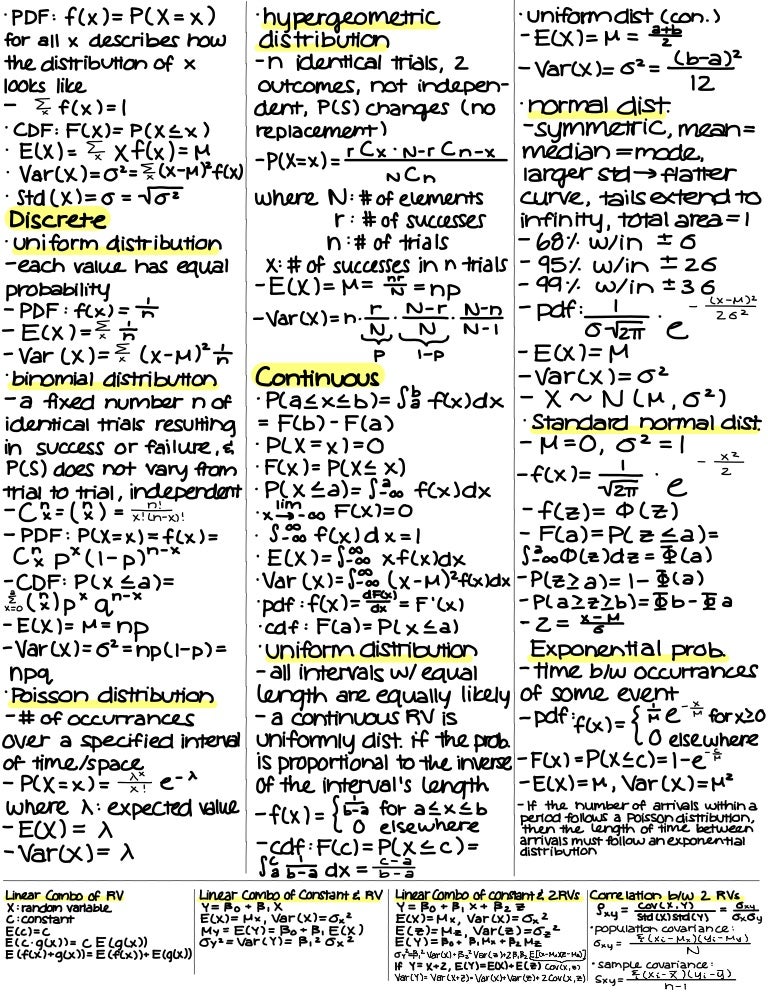 · PDF: f(x) = P(X = x)
for all x describes how
the distribution of x
looks like
- Σₓ f(x) = 1
· CDF: F(X) = P(X ≤ x)
· E(X) = Σₓ X f(x) = μ
· Var(x) = σ² = Σₓ (x-μ)² f(x)
· Std (X) = σ = √σ²
Discrete
· uniform distribution
- each value has equal
probability
- PDF: f(x) = 1/n
- E(X) = Σₓ 1/n
- Var (X) = Σₓ (x-μ)² 1/n
· binomial distribution
- a fixed number n of
identical trials resulting
in success or failure, &
P(S) does not vary from
trial to trial, independent
- Cⁿₓ = (ⁿₓ) = n!/x!(n-x)!
- PDF: P(X=x) = f(x) =
Cⁿₓ pˣ (1-p)ⁿ⁻ˣ
- CDF: P(X ≤ a) =
Σᵃₓ₌₀ (ⁿₓ) pˣ qⁿ⁻ˣ
- E(X) = μ = np
- Var(X) = σ² = np(1-p) =
npq
· Poisson distribution
- # of occurrances
over a specified interval
of time/space
- P(X=x) = λˣ/x! e^-λ
where λ: expected value
- E(X) = λ
- Var(X) = λ
· hypergeometric
distribution
- n identical trials, 2
outcomes, not indepen-
dent, P(S) changes (no
replacement)
- P(X=x) = rCx · N-rCn-x / NCn
where N: # of elements
r: # of successes
n: # of trials
x: # of successes in n trials
- E(X) = μ = nr/N = np
- Var(X) = n · r/N · N-r/N · N-n/N-1
p 1-p
Continuous
· P(a ≤ x ≤ b) = ∫ᵇₐ f(x)dx
= F(b) - F(a)
· P(X = x) = 0
· F(x) = P(X ≤ x)
· P(X ≤ a) = ∫ᵃ₋∞ f(x)dx
· lim x→-∞ F(X) = 0
· ∫^∞₋∞ f(x) dx = 1
· E(X) = ∫^∞₋∞ xf(x)dx
· Var (X) = ∫^∞₋∞ (x-μ)² f(x)dx
· pdf: f(x) = dF(x)/dx = F'(x)
· cdf: F(a) = P(X ≤ a)
· uniform distribution
- all intervals w/ equal
length are equally likely
- a continuous RV is
uniformly dist. if the prob.
is proportional to the inverse
of the interval's length
- f(x) = { 1/b-a for a ≤ x ≤ b
0 elsewhere
- cdf: F(c) = P(X ≤ c) =
∫ᶜₐ 1/b-a dx = c-a/b-a
· uniform dist (con.)
- E(X) = μ = a+b/2
- Var(X) = σ² = (b-a)²/12
· normal dist.
- symmetric, mean =
median = mode,
larger std → flatter
curve, tails extend to
infinity, total area = 1
- 68% w/in ± σ
- 95% w/in ± 2σ
- 99% w/in ± 3σ
- pdf: 1/σ√2π · e^-(x-μ)²/2σ²
- E(X) = μ
- Var(X) = σ²
- X ~ N(μ, σ²)
· Standard normal dist.
- μ = 0, σ² = 1
- f(x) = 1/√2π · e^-x²/2
- f(z) = Φ(z)
- F(a) = P(z ≤ a) =
∫ᵃ₋∞ Φ(z)dz = Φ(a)
- P(z ≥ a) = 1 - Φ(a)
- P(a ≥ z ≥ b) = Φb - Φa
- z = x-μ/σ
Exponential prob.
- time b/w occurrances
of some event
- pdf: f(x) = { 1/μ e^-x/μ for x ≥ 0
0 elsewhere
- F(x) = P(X ≤ c) = 1 - e^-c/μ
- E(X) = μ, Var(X) = μ²
- If the number of arrivals within a
period follows a Poisson distribution,
then the length of time between
arrivals must follow an exponential
distribution
Linear Combo of RV
X: random variable
C: constant
E(c) = C
E(c·g(x)) = c E(g(x))
E(f(x)+g(x)) = E(f(x)) + E(g(x))
Linear Combo of Constant & RV
Y = β₀ + β₁X
E(X) = μₓ, Var(X) = σₓ²
μy = E(Y) = β₀ + β₁ E(X)
σy² = Var(Y) = β₁² σₓ²
Linear Combo of constant & 2RVs
Y = β₀ + β₁ X + β₂ Z
E(X) = μₓ, Var(X) = σₓ²
E(z) = μz, Var(z) = σz²
E(Y) = β₀ + β₁ μₓ + β₂ μz
σy² = β₁² Var(x) + β₂² Var(z) + 2β₁β₂ E[(x-μₓ)(z-μz)]
Cov(x,z)
If Y = X+Z, E(Y) = E(X) + E(Z)
Var(Y) = Var(X+Z) = Var(X) + Var(Z) + 2Cov(X,Z)
Correlation b/w 2 RVs
ρxy = Cov(X,Y)/Std(X)Std(Y) = σxy/σxσy
· population covariance:
σxy = Σ(xi-μx)(yi-μy)/N
· sample covariance:
Sxy = Σ(xi-x̄)(yi-ȳ)/n-1